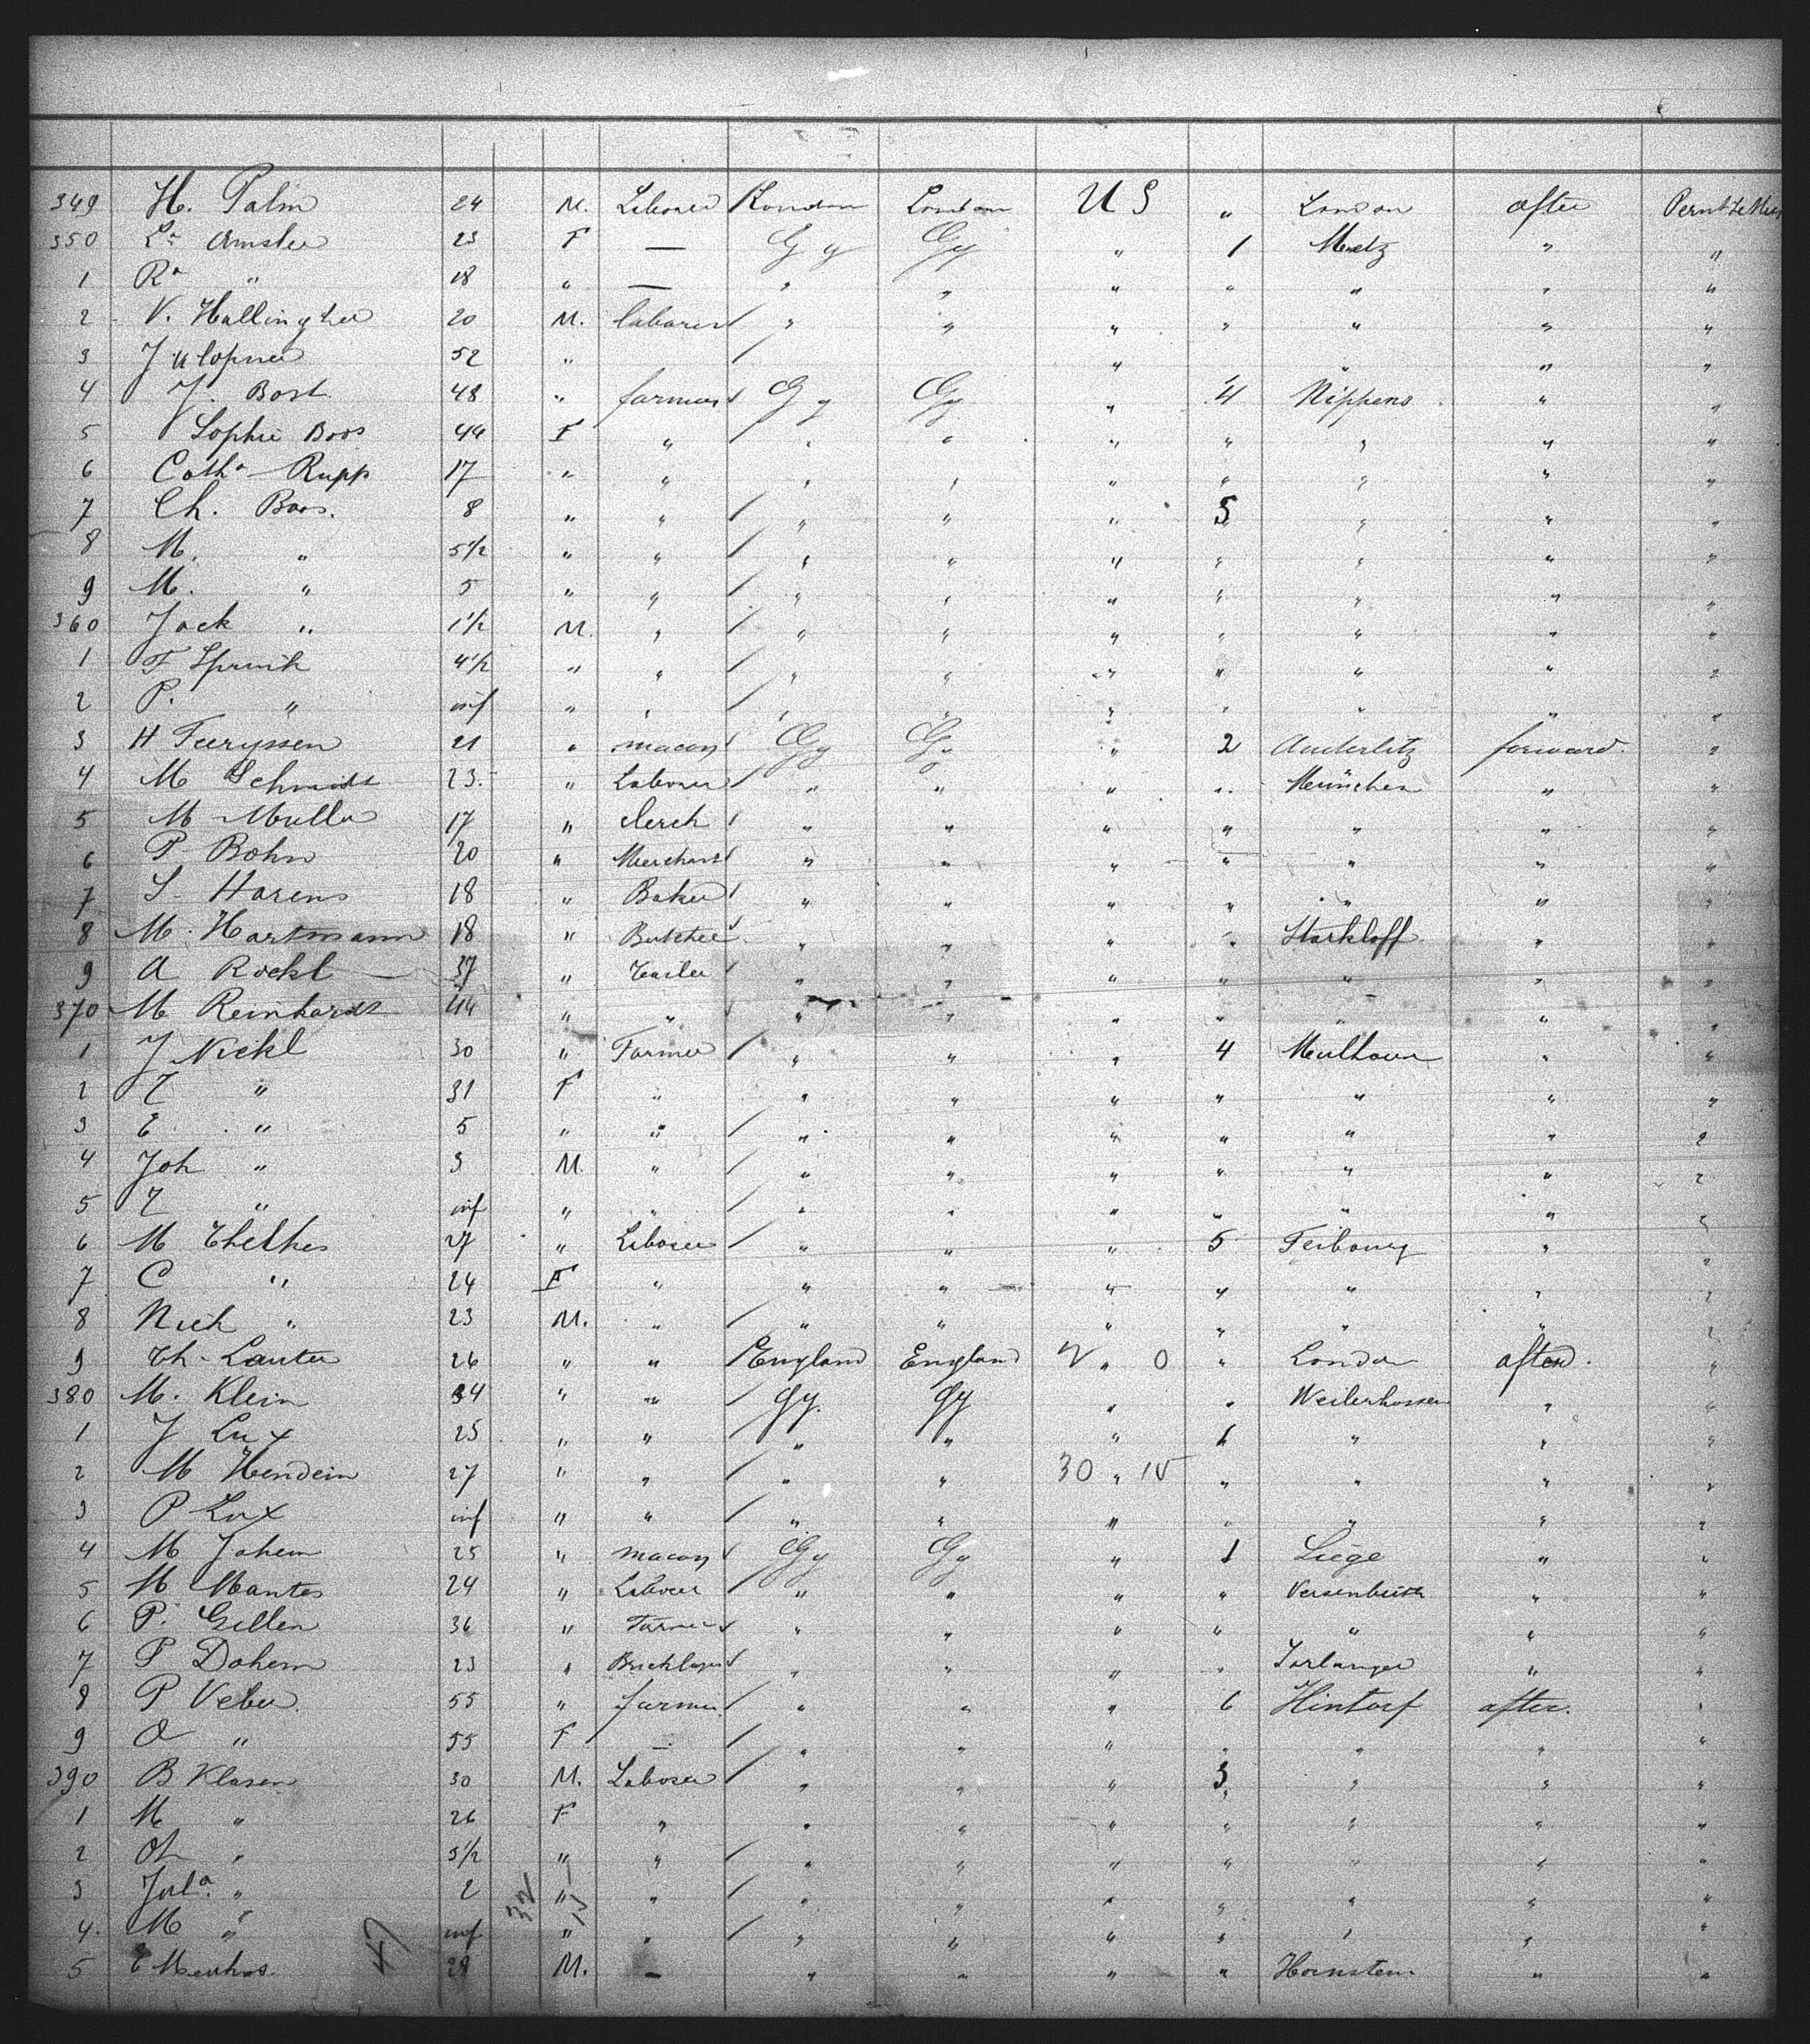 349 H. Palm 24 M. Laborer London London U S " London after Permt to Mus
350 La Amsler 23 F — Gy Gy " 1 Metz " "
1 Ra " 18 " — " " " " " " "
2 V. Hallingher 20 M. laborer " " " " " " "
3 J 52 " " " " "
4 J. Bost 48 " farmer Gy Gy " 4 Nippens " "
5 Sophie Boos 44 F " " " " " " " "
6 Catha Rupp 17 " " " " " " " " "
7 Ch. Boos. 8 " " " " " 5 " " "
8 M. " 5 1/2 " " " " " " " " "
9 M. " 5 " " " " " " " " "
360 Jack " 1 1/2 M. " " " " " " " "
1 F Spruik 4 1/2 " " " " " " " " "
2 P. " inf " " " " " " " " "
3 H Feeryssen 21 " macon Gy Gy " 2 Auderlitz forward. "
4 M Schmidt 23. " Laborer " " " " München " "
5 M Muller 17 " clerck " " " " " " "
6 P Bohn 20 " Merchant " " " " " " "
7 S. Horens 18 " Baker " " " " " " "
8 M. Hartmann 18 " Butcher " " " " Starkloff " "
9 A Rockl 37 " Tailer " " " " " " "
370 M Reinhardt 44 " " " " " " " " "
1 J Nickl 30 " Farmer " " " 4 Mulhour " "
2 Z " 31 F " " " " " " " "
3 E " 5 " " " " " " " " "
4 Joh " 3 M. " " " " " " " "
5 Z " inf " " " " " " " " "
6 M Thelkes 27 " Laborer " " " 5 Feibourg " "
7 C " 24 F " " " " " " " "
8 Nich " 23 M. " " " " " " " "
9 Th. Lauter 26 " " England England " 0 " London after. "
380 M. Klein 34 " " Gy. Gy " " Weilerhossen " "
1 J Lux 25 " " " " " " " "
2 M Hendein 27 " " " " 30 " 15 " " " "
3 P Lux inf " " " " " " " " "
4 M Johem 25 " macon Gy Gy " 1 Liége " "
5 M Mantes 24 " Laborer " " " " " "
6 P. Gillen 36 " Farmer " " " " " " "
7 P Dohem 23 " Bricklayer " " " " Sorlanger " "
8 P Veber. 55 " farmer. " " " 6 Hintorf after. "
9 O " 55 F — " " " " " " "
390 B Klasen 30 M. Laborer " " " 3 " " "
1 M " 26 F " " " " " " " "
2 " 3 1/2 " " " " " " " " "
3 Jula. " 2 " " " " " " " " "
4. M " inf " " " " " " " "
5 E Menhos. 29 M. — " " " " Hornstein " "
47 32 15